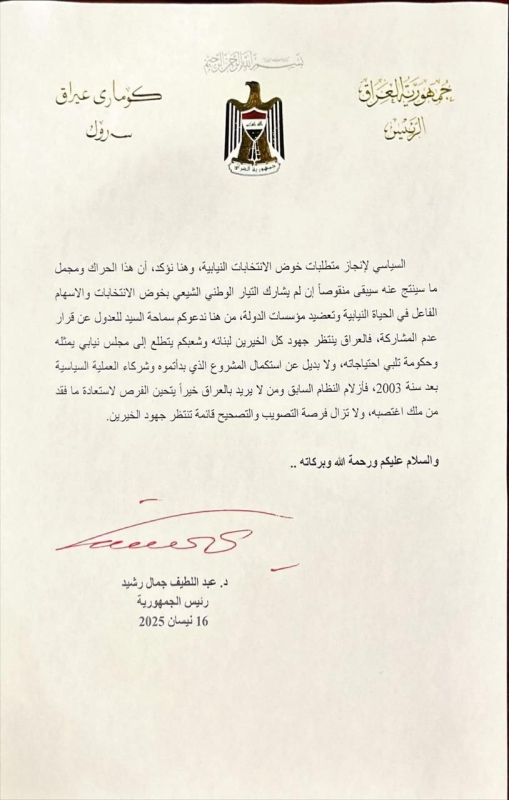 بسم الله الرحمن الرحيم
جمهورية العراق
الرئيس
كوماری عیراق
سەروک
الله اكبر
جمهورية العراق
السياسي لإنجاز متطلبات خوض الانتخابات النيابية، وهنا نؤكد، أن هذا الحراك ومجمل
ما سينتج عنه سيبقى منقوصاً إن لم يشارك التيار الوطني الشيعي بخوض الانتخابات والاسهام
الفاعل في الحياة النيابية وتعضيد مؤسسات الدولة، من هنا ندعوكم سماحة السيد للعدول عن قرار
عدم المشاركة، فالعراق ينتظر جهود كل الخيرين لبنائه وشعبكم يتطلع إلى مجلس نيابي يمثله
وحكومة تلبي احتياجاته، ولا بديل عن استكمال المشروع الذي بدأتموه وشركاء العملية السياسية
بعد سنة 2003، فأزلام النظام السابق ومن لا يريد بالعراق خيراً يتحين الفرص لاستعادة ما فقد
من ملك اغتصبه، ولا تزال فرصة التصويب والتصحيح قائمة تنتظر جهود الخيرين.
والسلام عليكم ورحمة الله وبركاته ..
د. عبد اللطيف جمال رشيد
رئيس الجمهورية
16 نيسان 2025